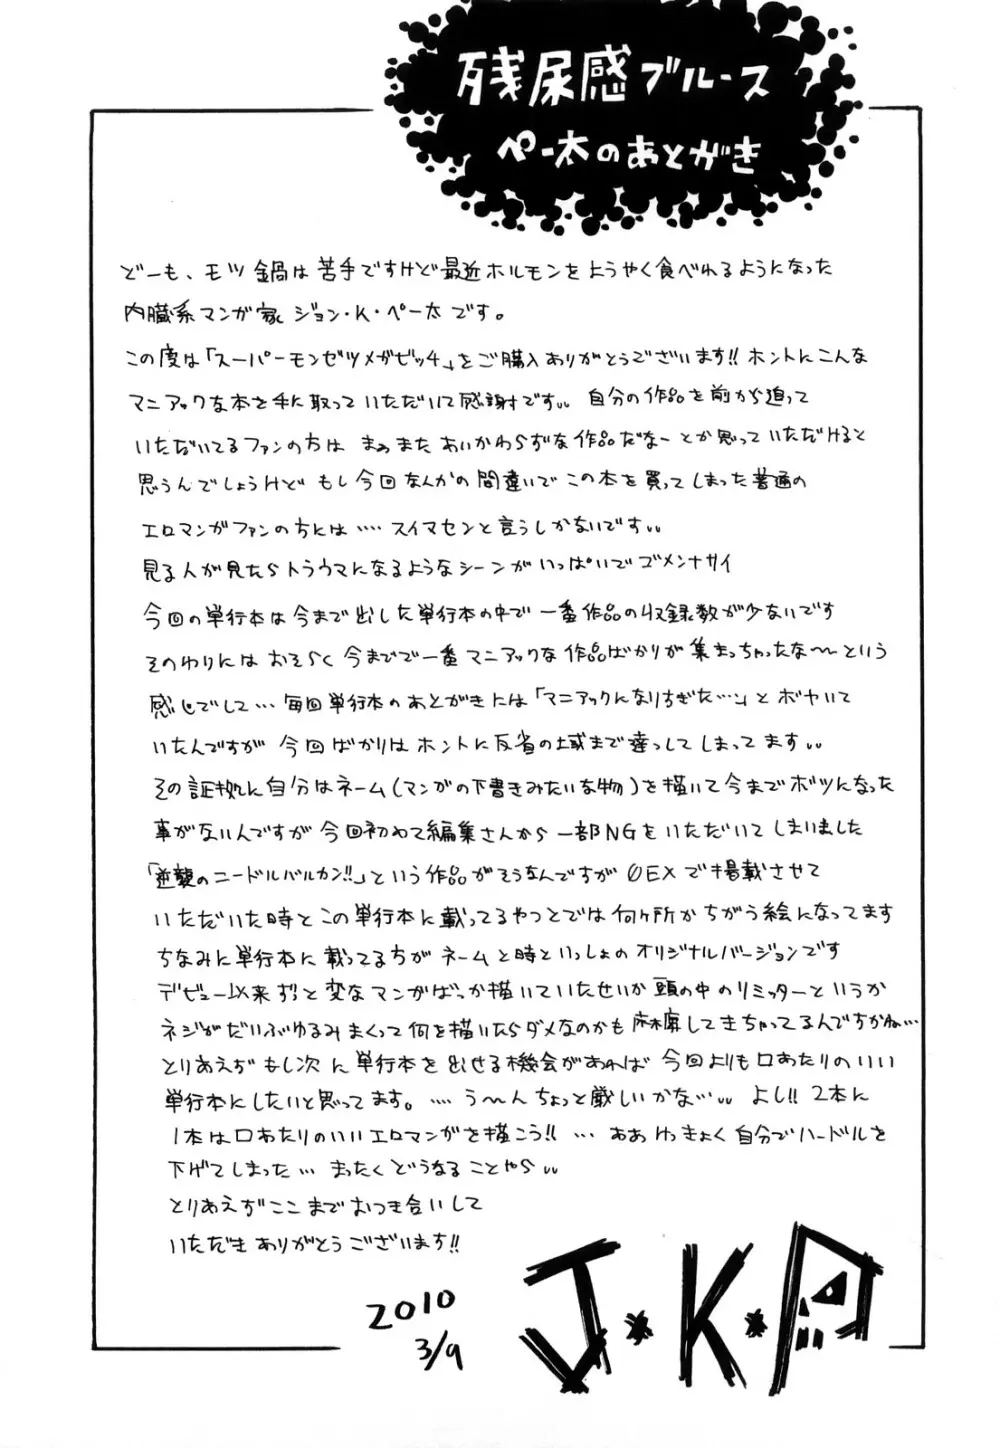 残尿感ブルース
ペー太のあとがき
どーも、モツ鍋は苦手ですけど最近ホルモンをようやく食べれるようになった
内臓系マンガ家 ジョン・K・ペー太です。
この度は「スーパーモンゼツメガビッチ」をご購入ありがとうございます!! ホントにこんな
マニアックな本を手に取っていただいて感謝です。。 自分の作品を前から追って
いただいてるファンの方は まぁまた あいかわらずな作品だなーとか思っていただけると
思うんでしょうけど もし今回なんかの間違いでこの本を買ってしまった普通の
エロマンガファンの方には‥‥ スイマセンと言うしかないです。。
見る人が見たらトラウマになるようなシーンがいっぱいでゴメンナサイ
今回の単行本は今まで出した単行本の中で一番作品の収録数が少ないです
そのわりにはおそらく今までで一番マニアックな作品ばかりが集まっちゃったな〜という
感じでして… 毎回単行本のあとがきには「マニアックになりすぎた…」とボヤいて
いたんですが 今回ばかりはホントに反省の域まで達っしてしまってます。。
その証拠に自分はネーム(マンガの下書きみたいな物)を描いて今までボツになった
事がないんですが今回初めて編集さんから一部NGをいただいてしまいました
「逆襲のニードルバルカン!!」という作品がそうなんですが 0EXで掲載させて
いただいた時とこの単行本に載ってるやつとでは何ヶ所かちがう絵になってます
ちなみに単行本に載ってる方がネームと時といっしょのオリジナルバージョンです
デビュー以来ずっと変なマンガばっか描いていたせいか頭の中のリミッターというか
ネジがだいぶゆるみまくって何を描いたらダメなのかも麻痺してきちゃってるんですかね…
とりあえず もし次に単行本を出せる機会があれば 今回よりも口あたりのいい
単行本にしたいと思ってます。‥‥ う〜んちょっと厳しいかな…。。 よし!! 2本に
1本は口あたりのいいエロマンガを描こう!! … ああ けっきょく自分でハードルを
下げてしまった… まったくどうなることやら。。
とりあえずここまでおつき合いして
いただきありがとうございます!!
2010
3/9
J*K*P